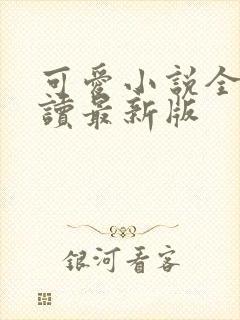 可愛小説全
讀最新版
銀河看客